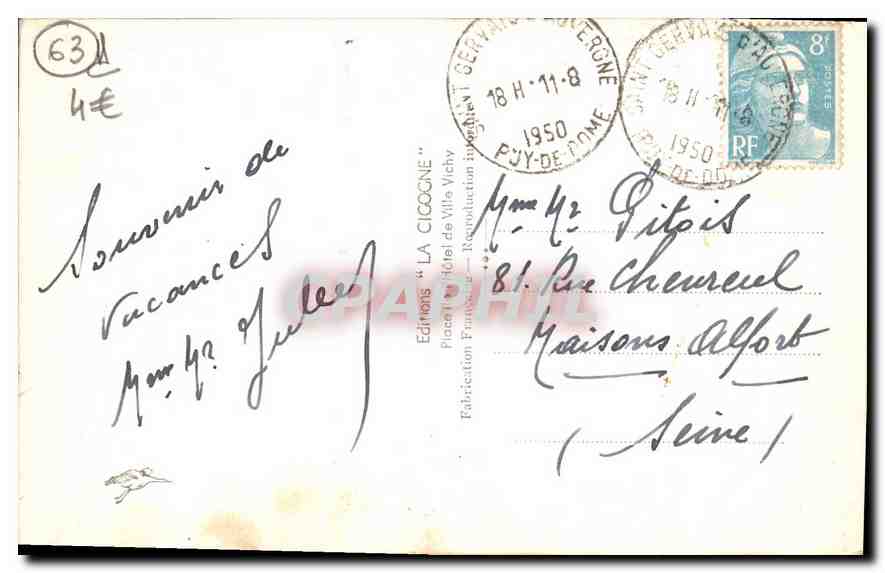 63
4€
SAINT GERVAIS D'AUVERGNE
18 H -11-8
1950
PUY-DE-DOME
SAINT GERVAIS D'AUVERGNE
18 H -11-8
1950
PUY-DE-DOME
8F
POSTES
RF
Souvenir de
vacances
Mme Mr
Editions "LA CICOGNE"
Place de l'Hôtel de Ville Vichy
Fabrication Française — Reproduction interdite
CPAPHIL
Mme Mr Pitois
81. Rue Chevreul
Maisons Alfort
(Seine)